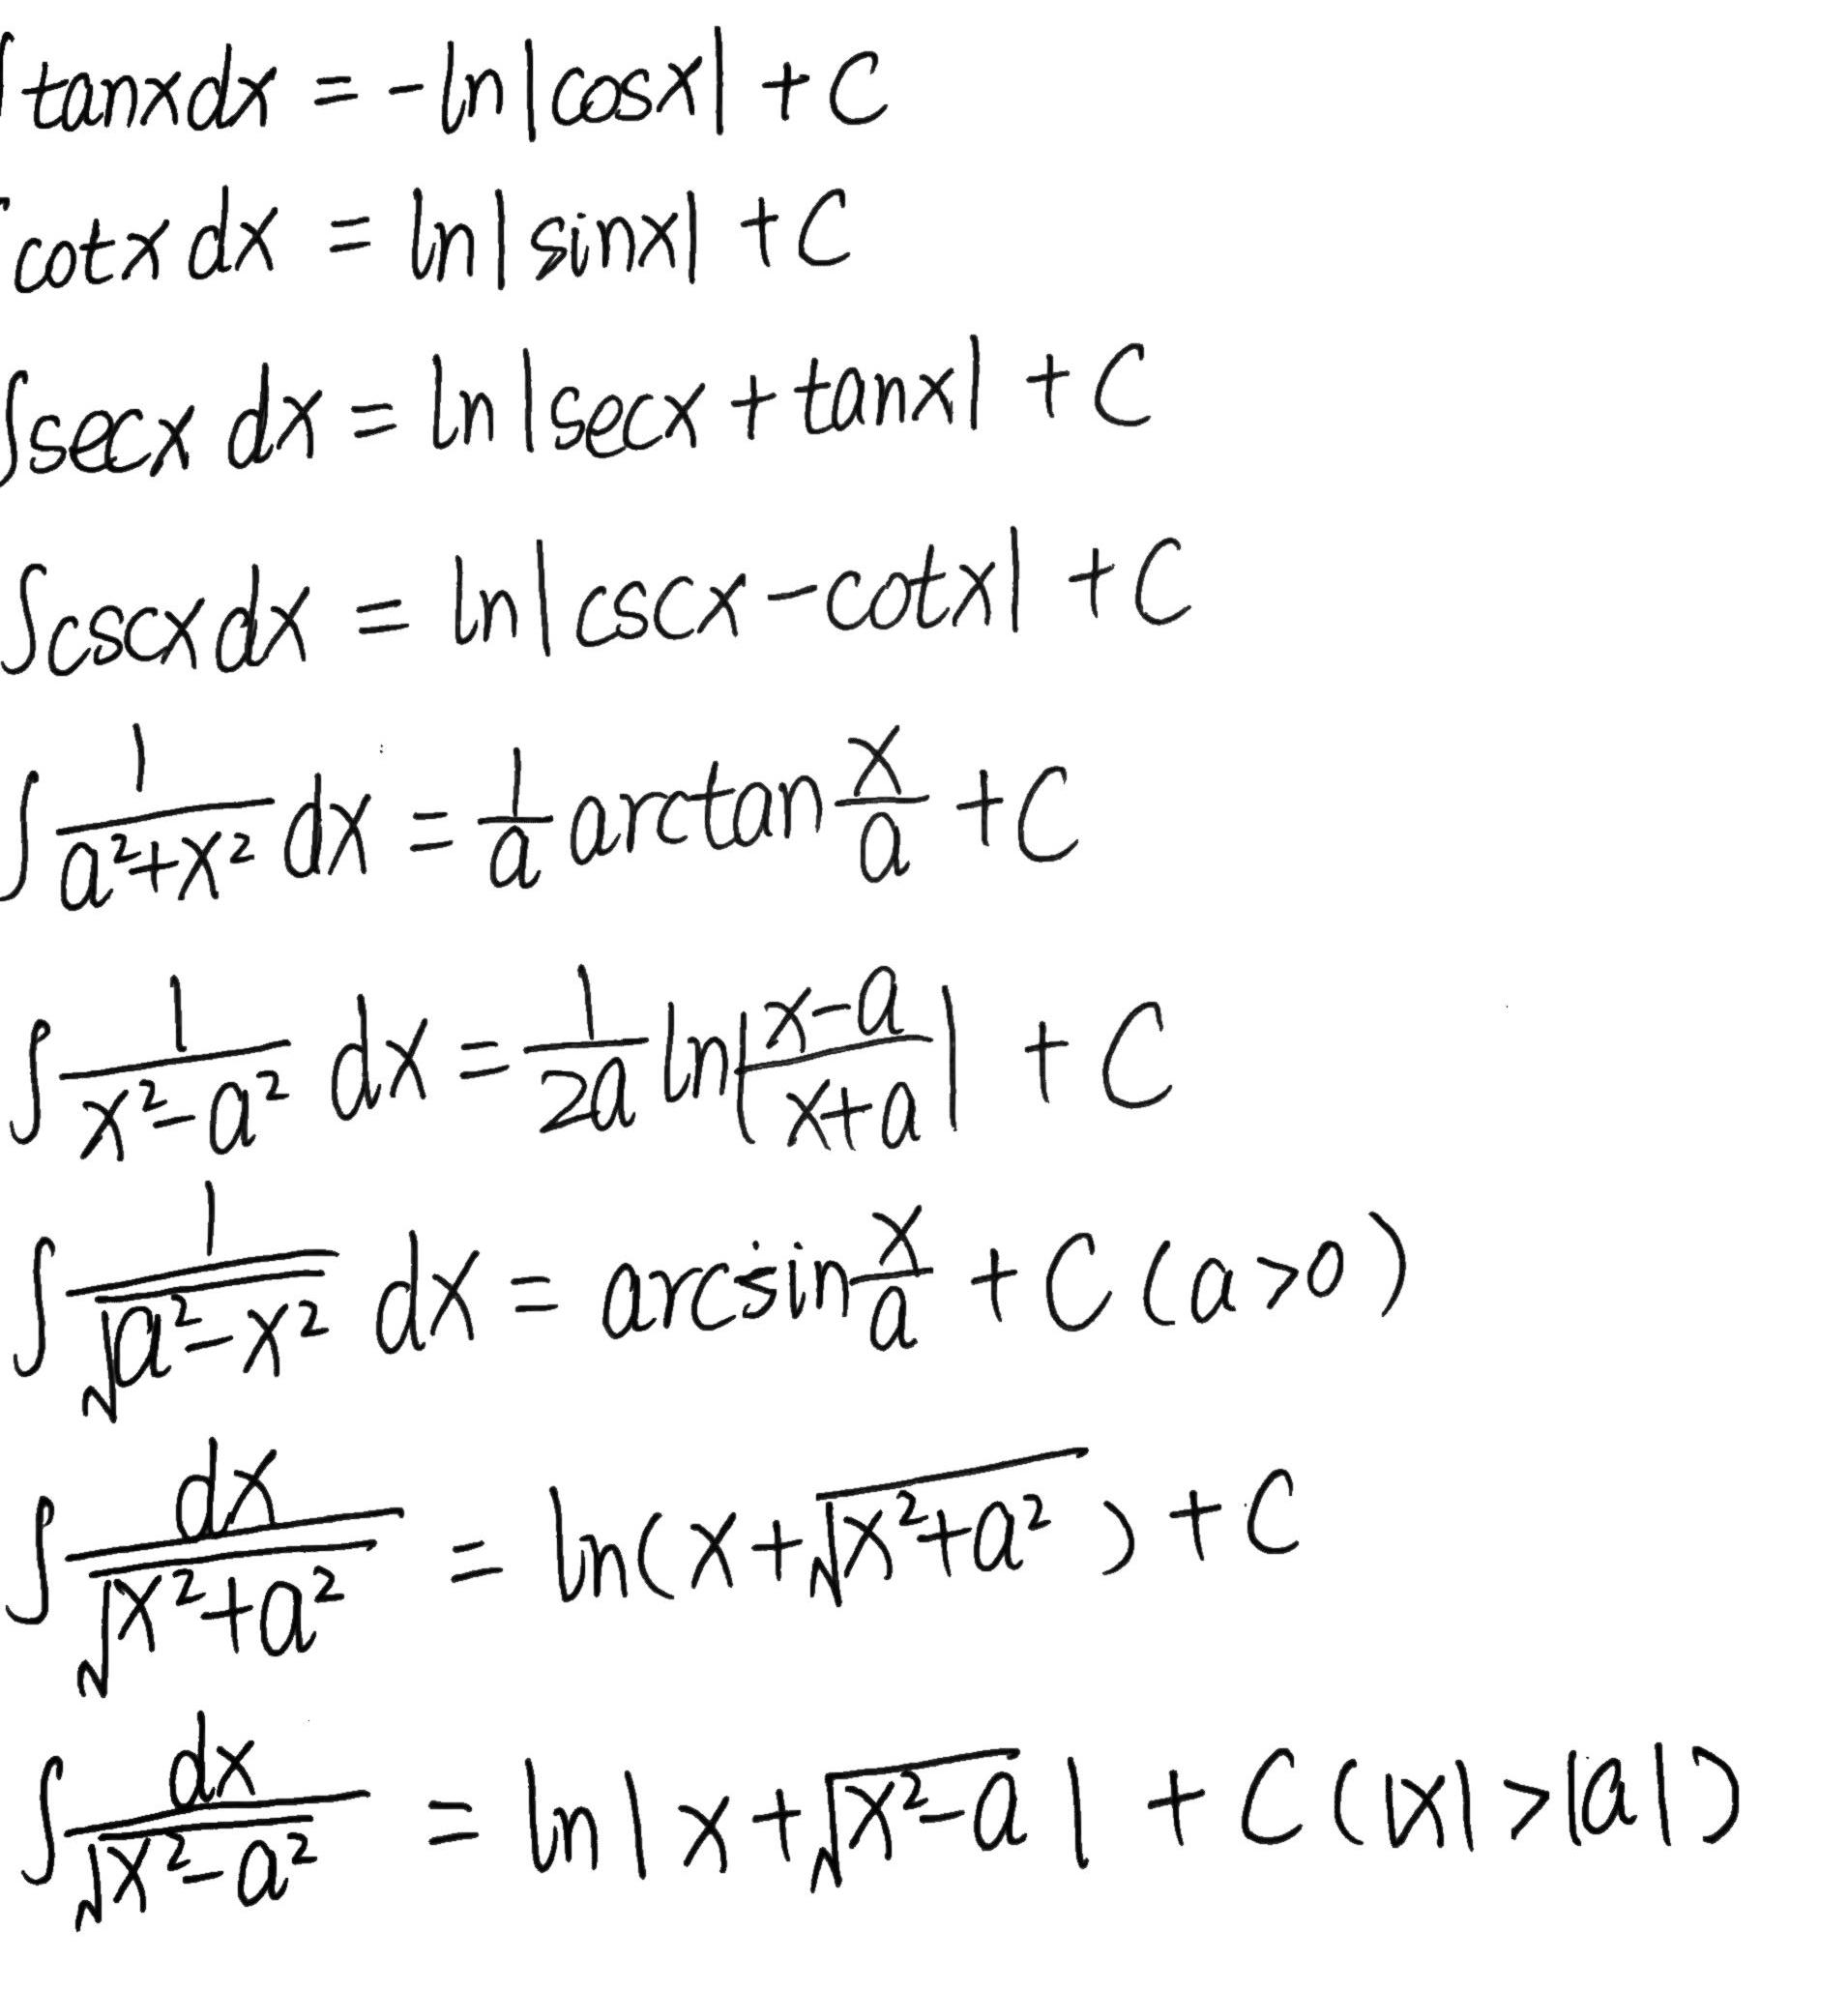 ∫tanxdx = -ln|cosx| + C
∫cotxdx = ln|sinx| + C
∫secx dx = ln|secx + tanx| + C
∫cscxdx = ln|cscx - cotx| + C
∫ 1/(a²+x²) dx = 1/a arctan x/a + C
∫ 1/(x²-a²) dx = 1/(2a) ln|(x-a)/(x+a)| + C
∫ 1/√(a²-x²) dx = arcsin x/a + C (a>0)
∫ dx/√(x²+a²) = ln(x+√(x²+a²)) + C
∫ dx/√(x²-a²) = ln|x+√(x²-a)| + C (|x|>|a|)